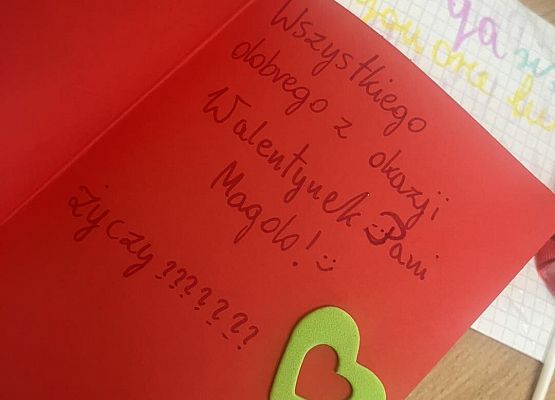 Wszystkiego
dobrego z okazji
Walentynek Pani
Magdo!
życzy ???????
you are